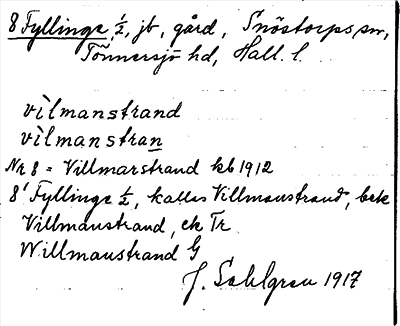 8 Fyllinge, 1/2, jb, gård, Snöstorps sn,
Tönnersjö hd, Hall. l.
vìlmanstrand
vìlmanstran
Nr 8 = Villmarstrand kb 1912
8¹ Fyllinge 1/2, kallas Villmanstrand, bek
Villmanstrand, ek Tr
Willmanstrand G
J. Sahlgren 1917